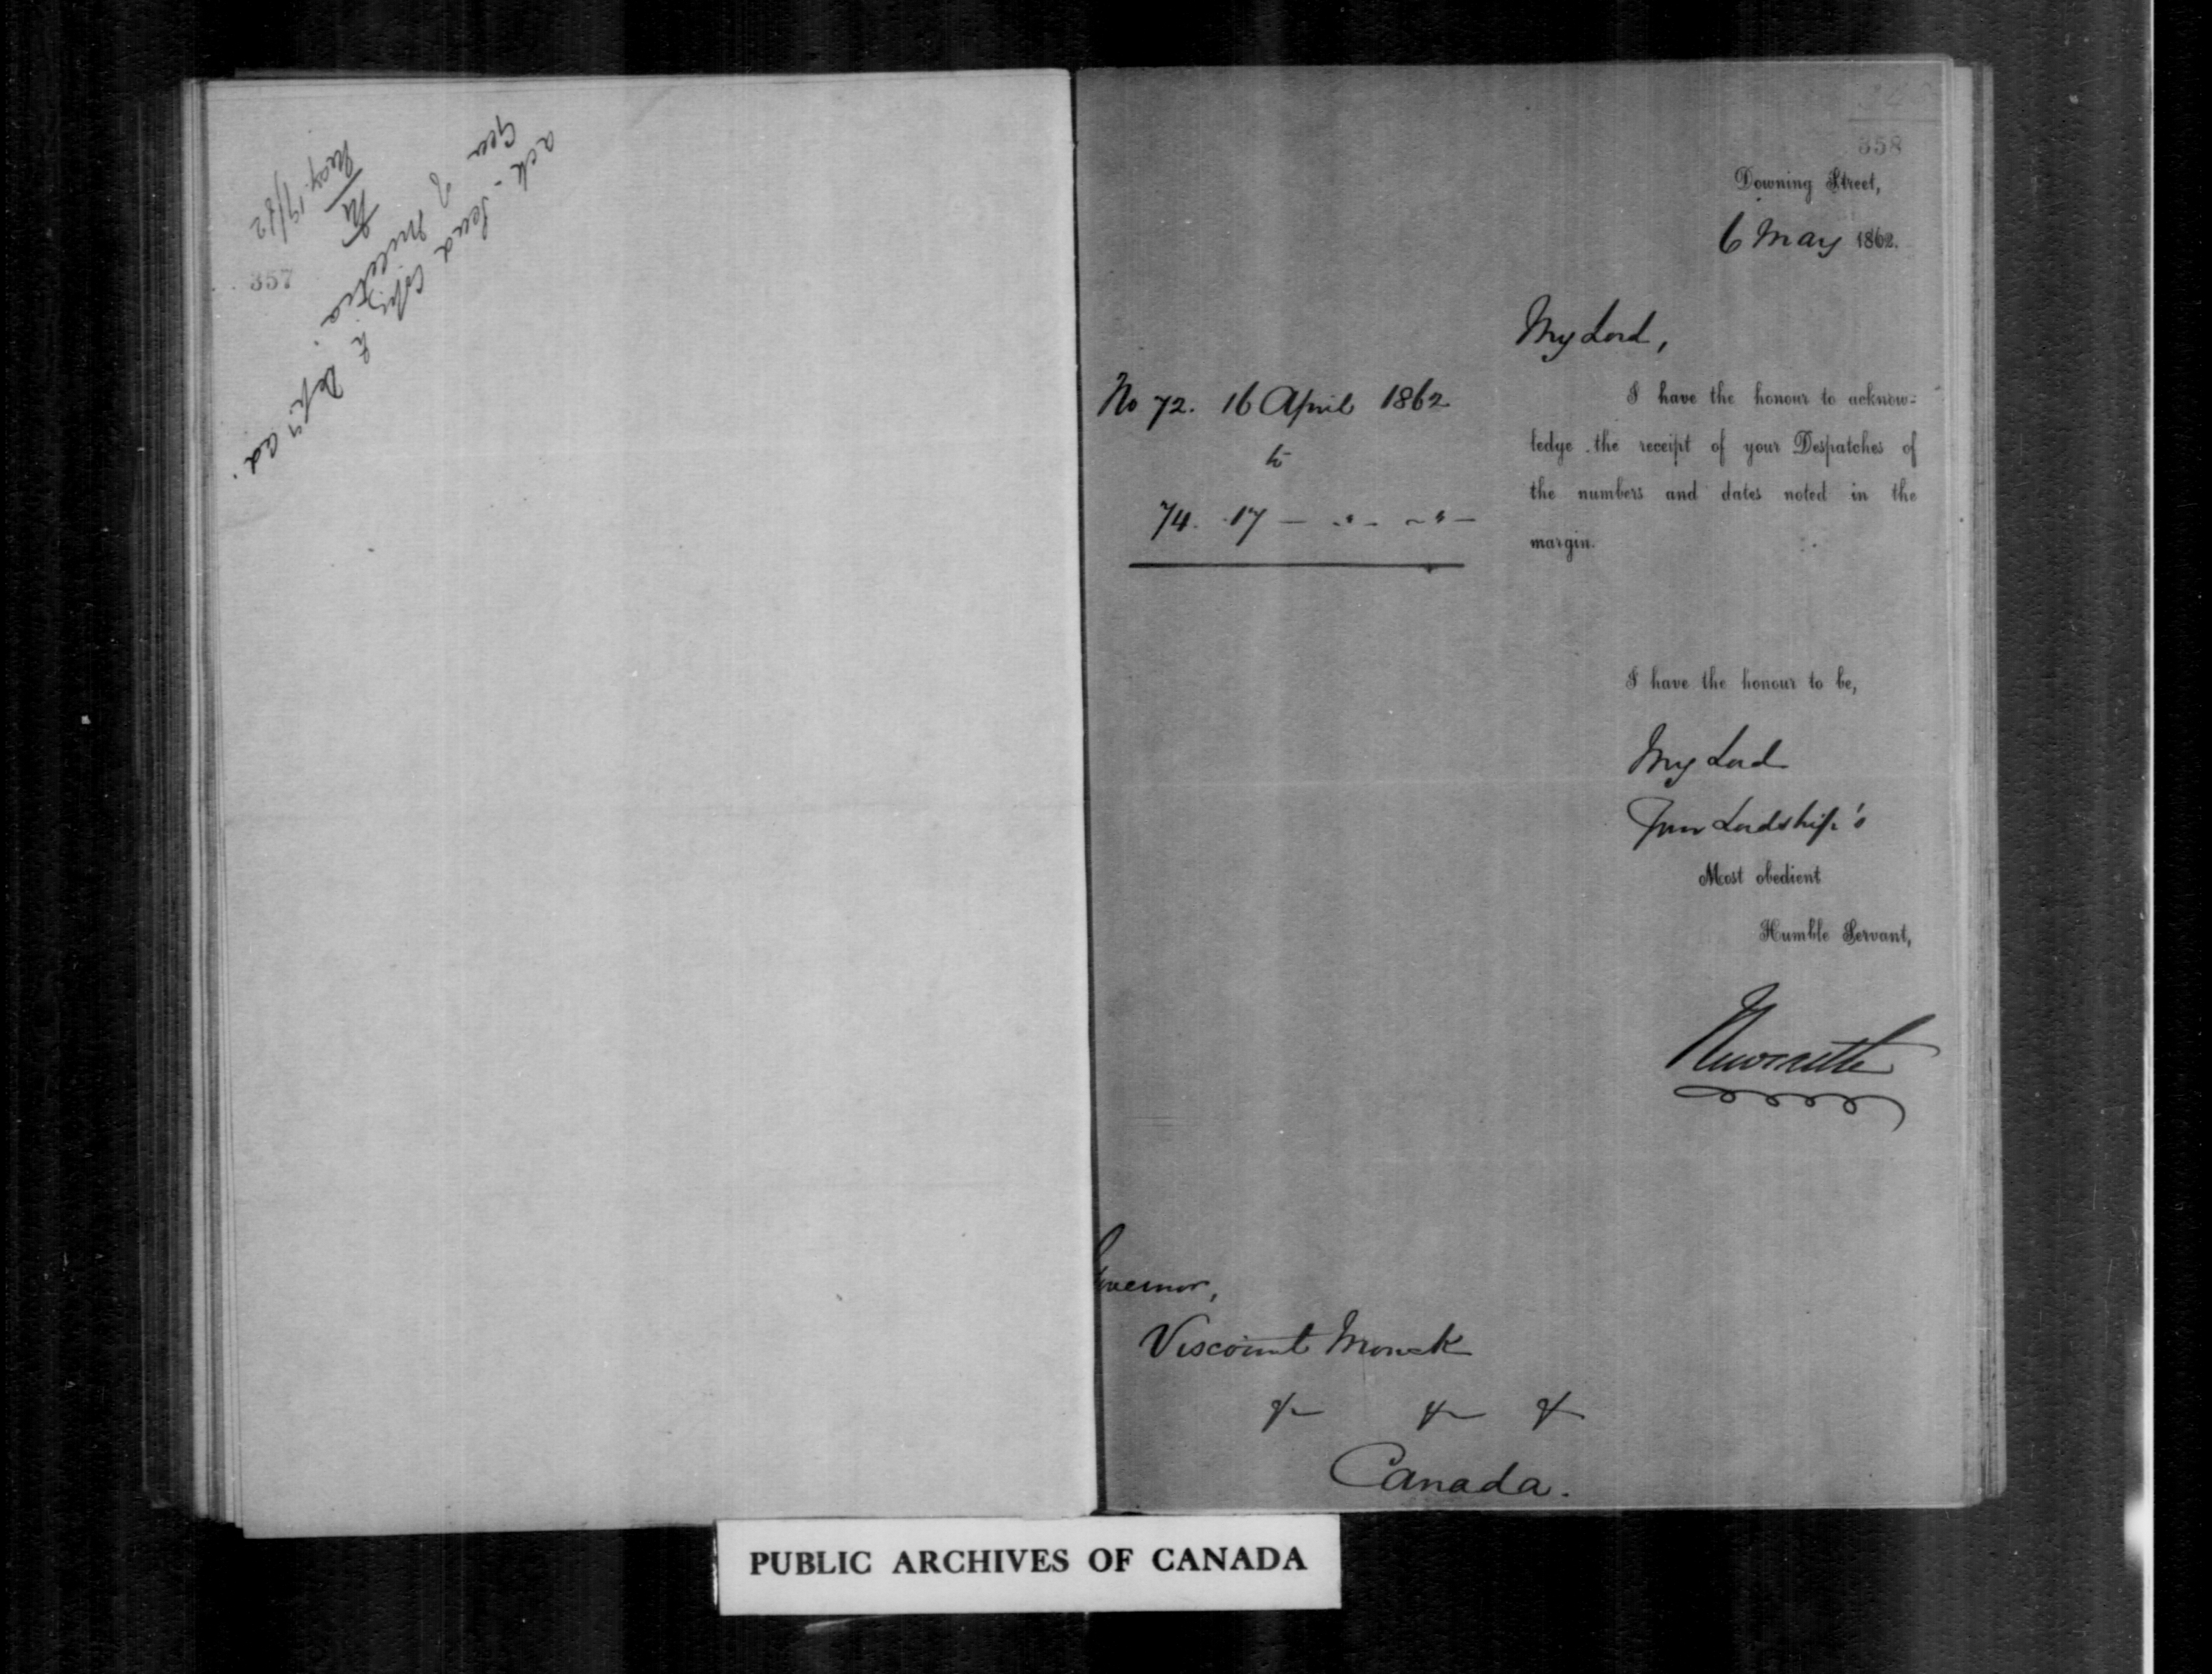 ack. Send Copy to Depy. Ad.
Gen of Militia.
May 19/62
357
358
Downing Street,
6 May 1862.
My Lord,
No 72. 16 April 1862
to
74. 17 — " — " —
I have the honour to acknow=
ledge the receipt of your Despatches of
the numbers and dates noted in the
margin.
I have the honour to be,
My Lord
Your Lordship's
Most obedient
Humble Servant,
Newcastle
Governor,
Viscount Monck
&c &c &c
Canada.
PUBLIC ARCHIVES OF CANADA